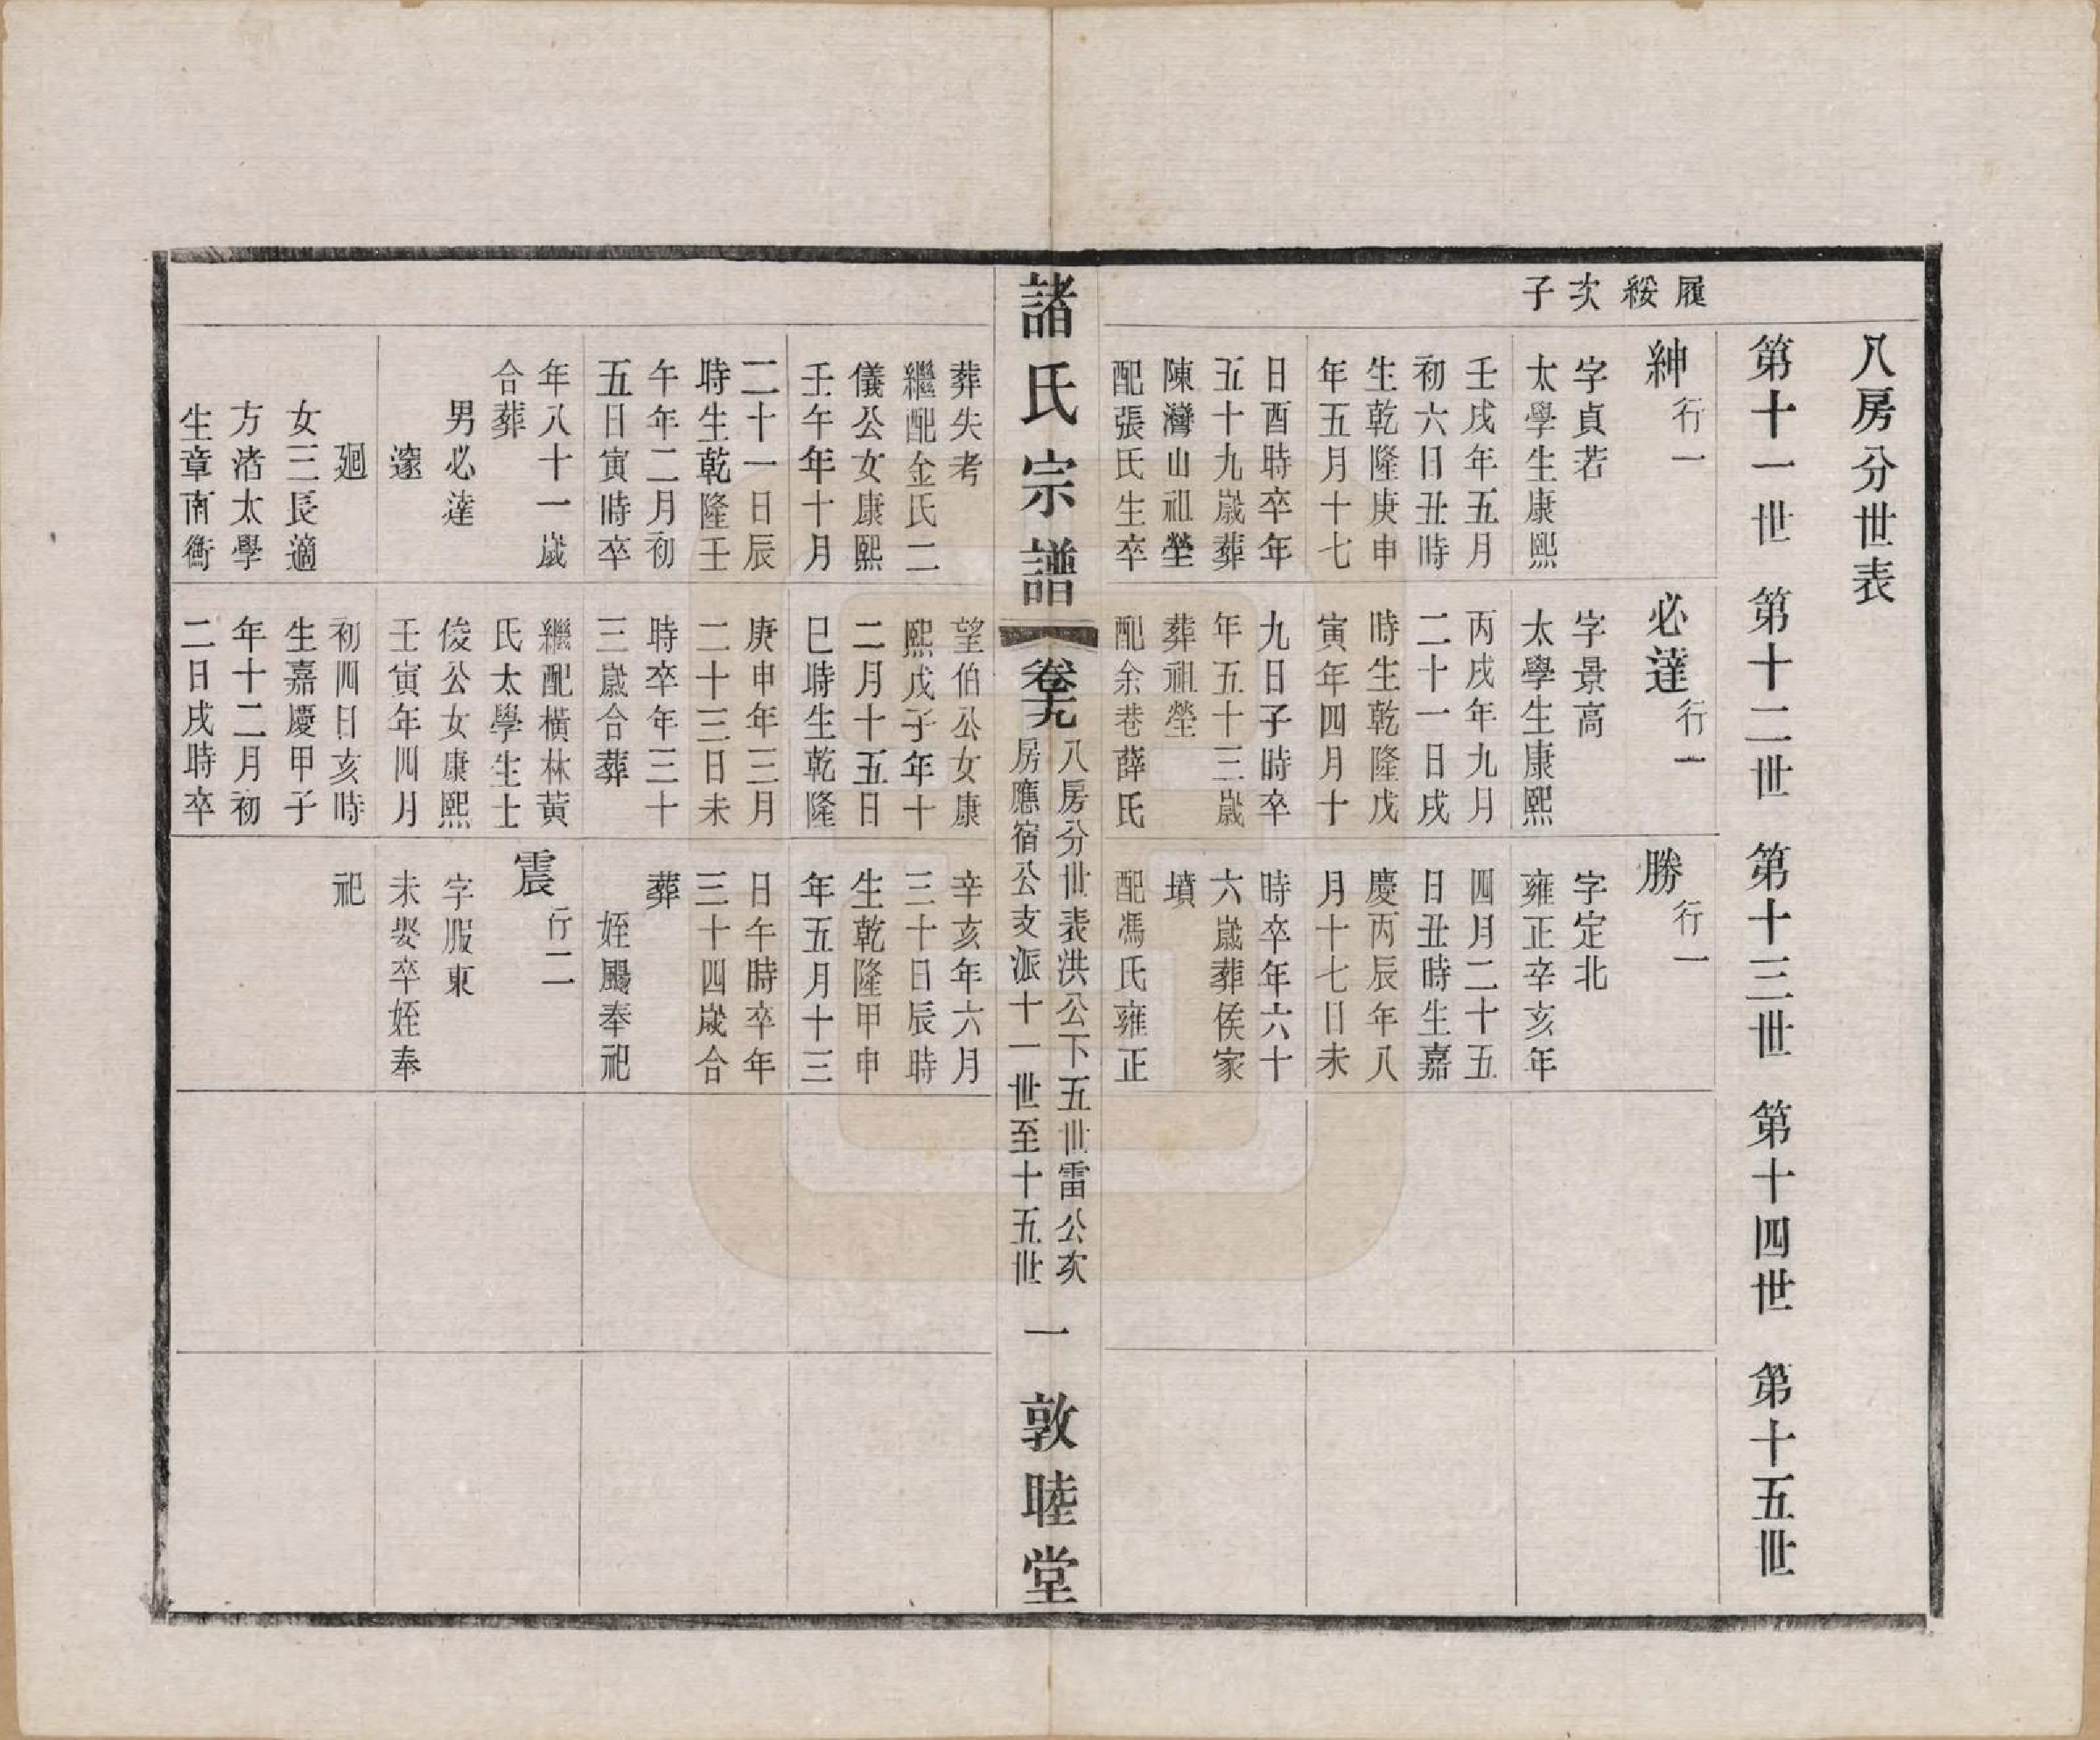 八房分世表
第十一世 第十二世 第十三世 第十四世 第十五世
履綏次子
紳行一
字貞若
太學生康熙
壬戌年五月
初六日丑時
生乾隆庚申
年五月十七
日酉時卒年
五十九歲葬
陳灣山祖塋
配張氏生卒
葬失考
繼配金氏二
儀公女康熙
壬午年十月
二十一日辰
時生乾隆壬
午年二月初
五日寅時卒
年八十一歲
合葬
男必達
邃
廻
女三長適
方渚太學
生章南衡
必達行一
字景高
太學生康熙
丙戌年九月
二十一日戌
時生乾隆戊
寅年四月十
九日子時卒
年五十三歲
葬祖塋
配余巷薛氏
望伯公女康
熙戊子年十
二月十五日
巳時生乾隆
庚申年三月
二十三日未
時卒年三十
三歲合葬
繼配橫林黃
氏太學生士
俊公女康熙
壬寅年四月
初四日亥時
生嘉慶甲子
年十二月初
二日戌時卒
勝行一
字定北
雍正辛亥年
四月二十五
日丑時生嘉
慶丙辰年八
月十七日未
時卒年六十
六歲葬侯家
墳
配馮氏雍正
辛亥年六月
三十日辰時
生乾隆甲申
年五月十三
日午時卒年
三十四歲合
葬
姪颺奉祀
震行二
字服東
未娶卒姪奉
祀
諸氏宗譜
卷十九
八房分世表洪公下五世雷公次
房應宿公支派十一世至十五世
一
敦睦堂